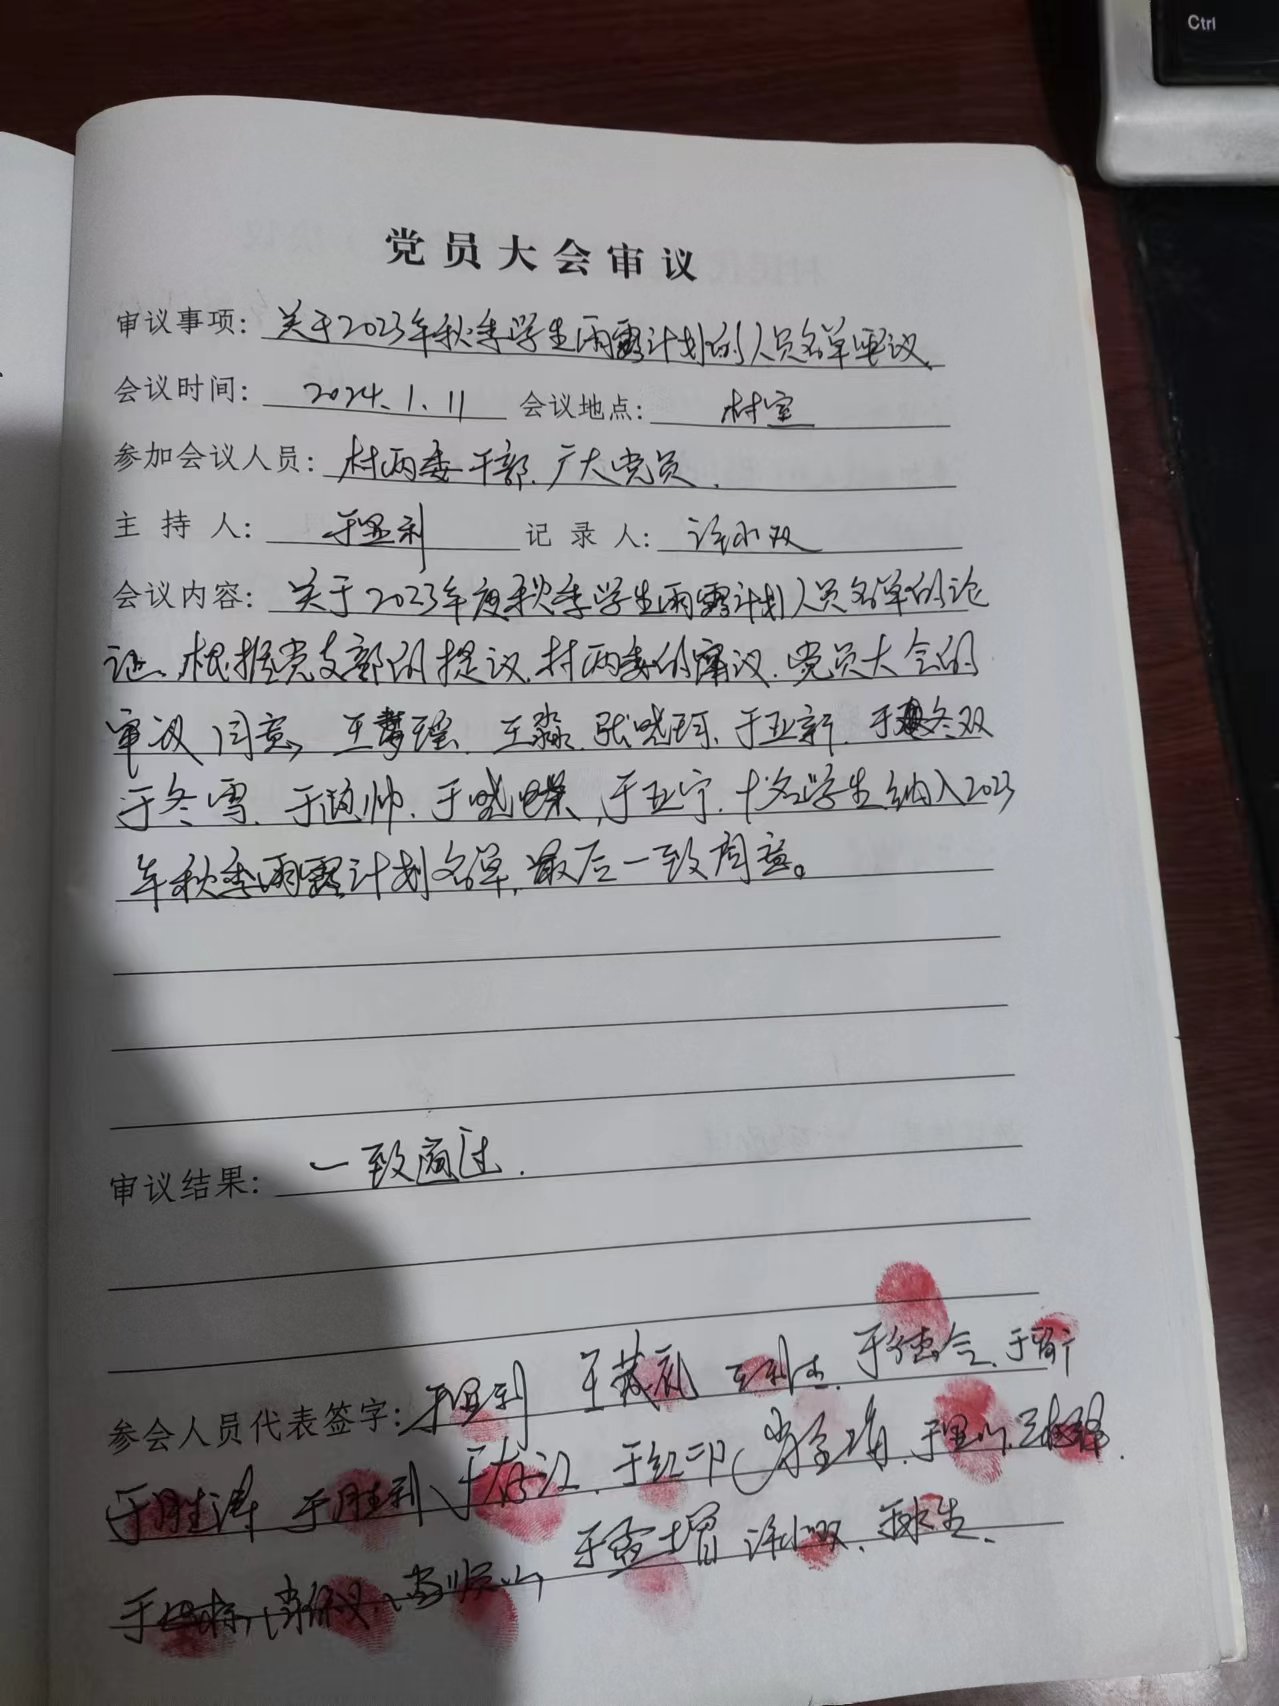 Ctrl
党员大会审议
审议事项: 关于2023年秋季学生雨露计划的人员名单审议.
会议时间: 2024.1.11 会议地点: 村室
参加会议人员: 村两委干部、广大党员.
主持人: 于显利 记录人: 许小双
会议内容: 关于2023年度秋季学生雨露计划人员名单的论
证。根据党支部的提议.村两委的审议.党员大会的
审议同意, 王梦瑶. 王淼. 张晓珂. 于亚新. 于冬双
于冬雪. 于帅. 于晓, 于亚宁. 十名学生纳入2023
年秋季雨露计划名单, 最后一致同意。
审议结果: 一致通过.
参会人员代表签字: 于显利 王 于德
于胜涛 于胜利 于存江. 于红印 肖金
于 许小双. 永生.
于